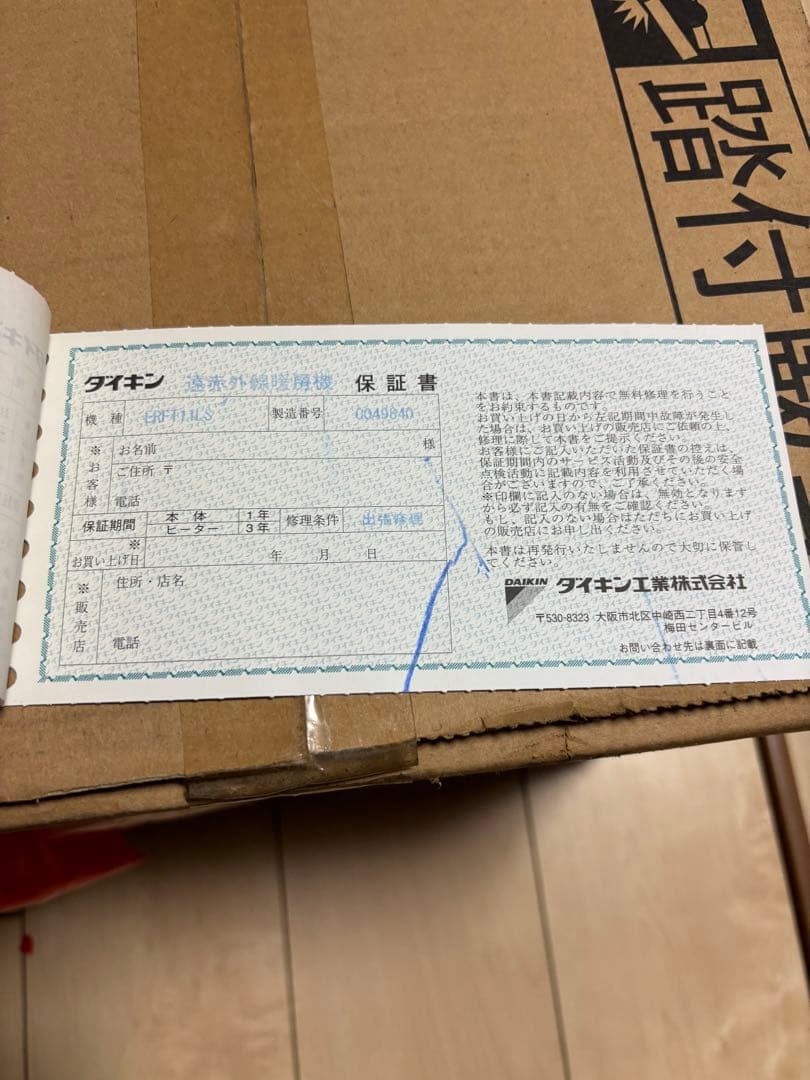 踏付
ダイキン 遠赤外線暖房機 保証書
機種 ERFT11LS 製造番号 0049840
※お客様
お名前 様
ご住所 〒
電話
保証期間 本体 1年 ヒーター 3年 修理条件 出張修理
※お買い上げ日 年 月 日
※販売店
住所・店名
電話
本書は、本書記載内容で無料修理を行うこと
をお約束するものです。
お買い上げの日から左記期間中故障が発生し
た場合は、お買い上げの販売店にご依頼の上、
修理に際して本書をご提示ください。
お客様にご記入いただいた保証書の控えは、
保証期間内のサービス活動及びその後の安全
点検活動に記載内容を利用させていただく場
合がございますので、ご了承ください。
※印欄に記入のない場合は、無効となります
から必ず記入の有無をご確認ください。
もし、記入のない場合はただちにお買い上げ
の販売店にお申し出ください。
本書は再発行いたしませんので大切に保管し
てください。
DAIKIN ダイキン工業株式会社
〒530-8323 大阪市北区中崎西二丁目4番12号
梅田センタービル
お問い合わせ先は裏面に記載